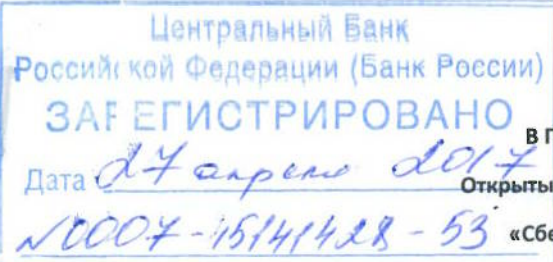 Центральный Банк
Российской Федерации (Банк России)
ЗАРЕГИСТРИРОВАНО
В П
Дата 27 апреля 2017
Открыты
№0007-15141428-53 «Сбе